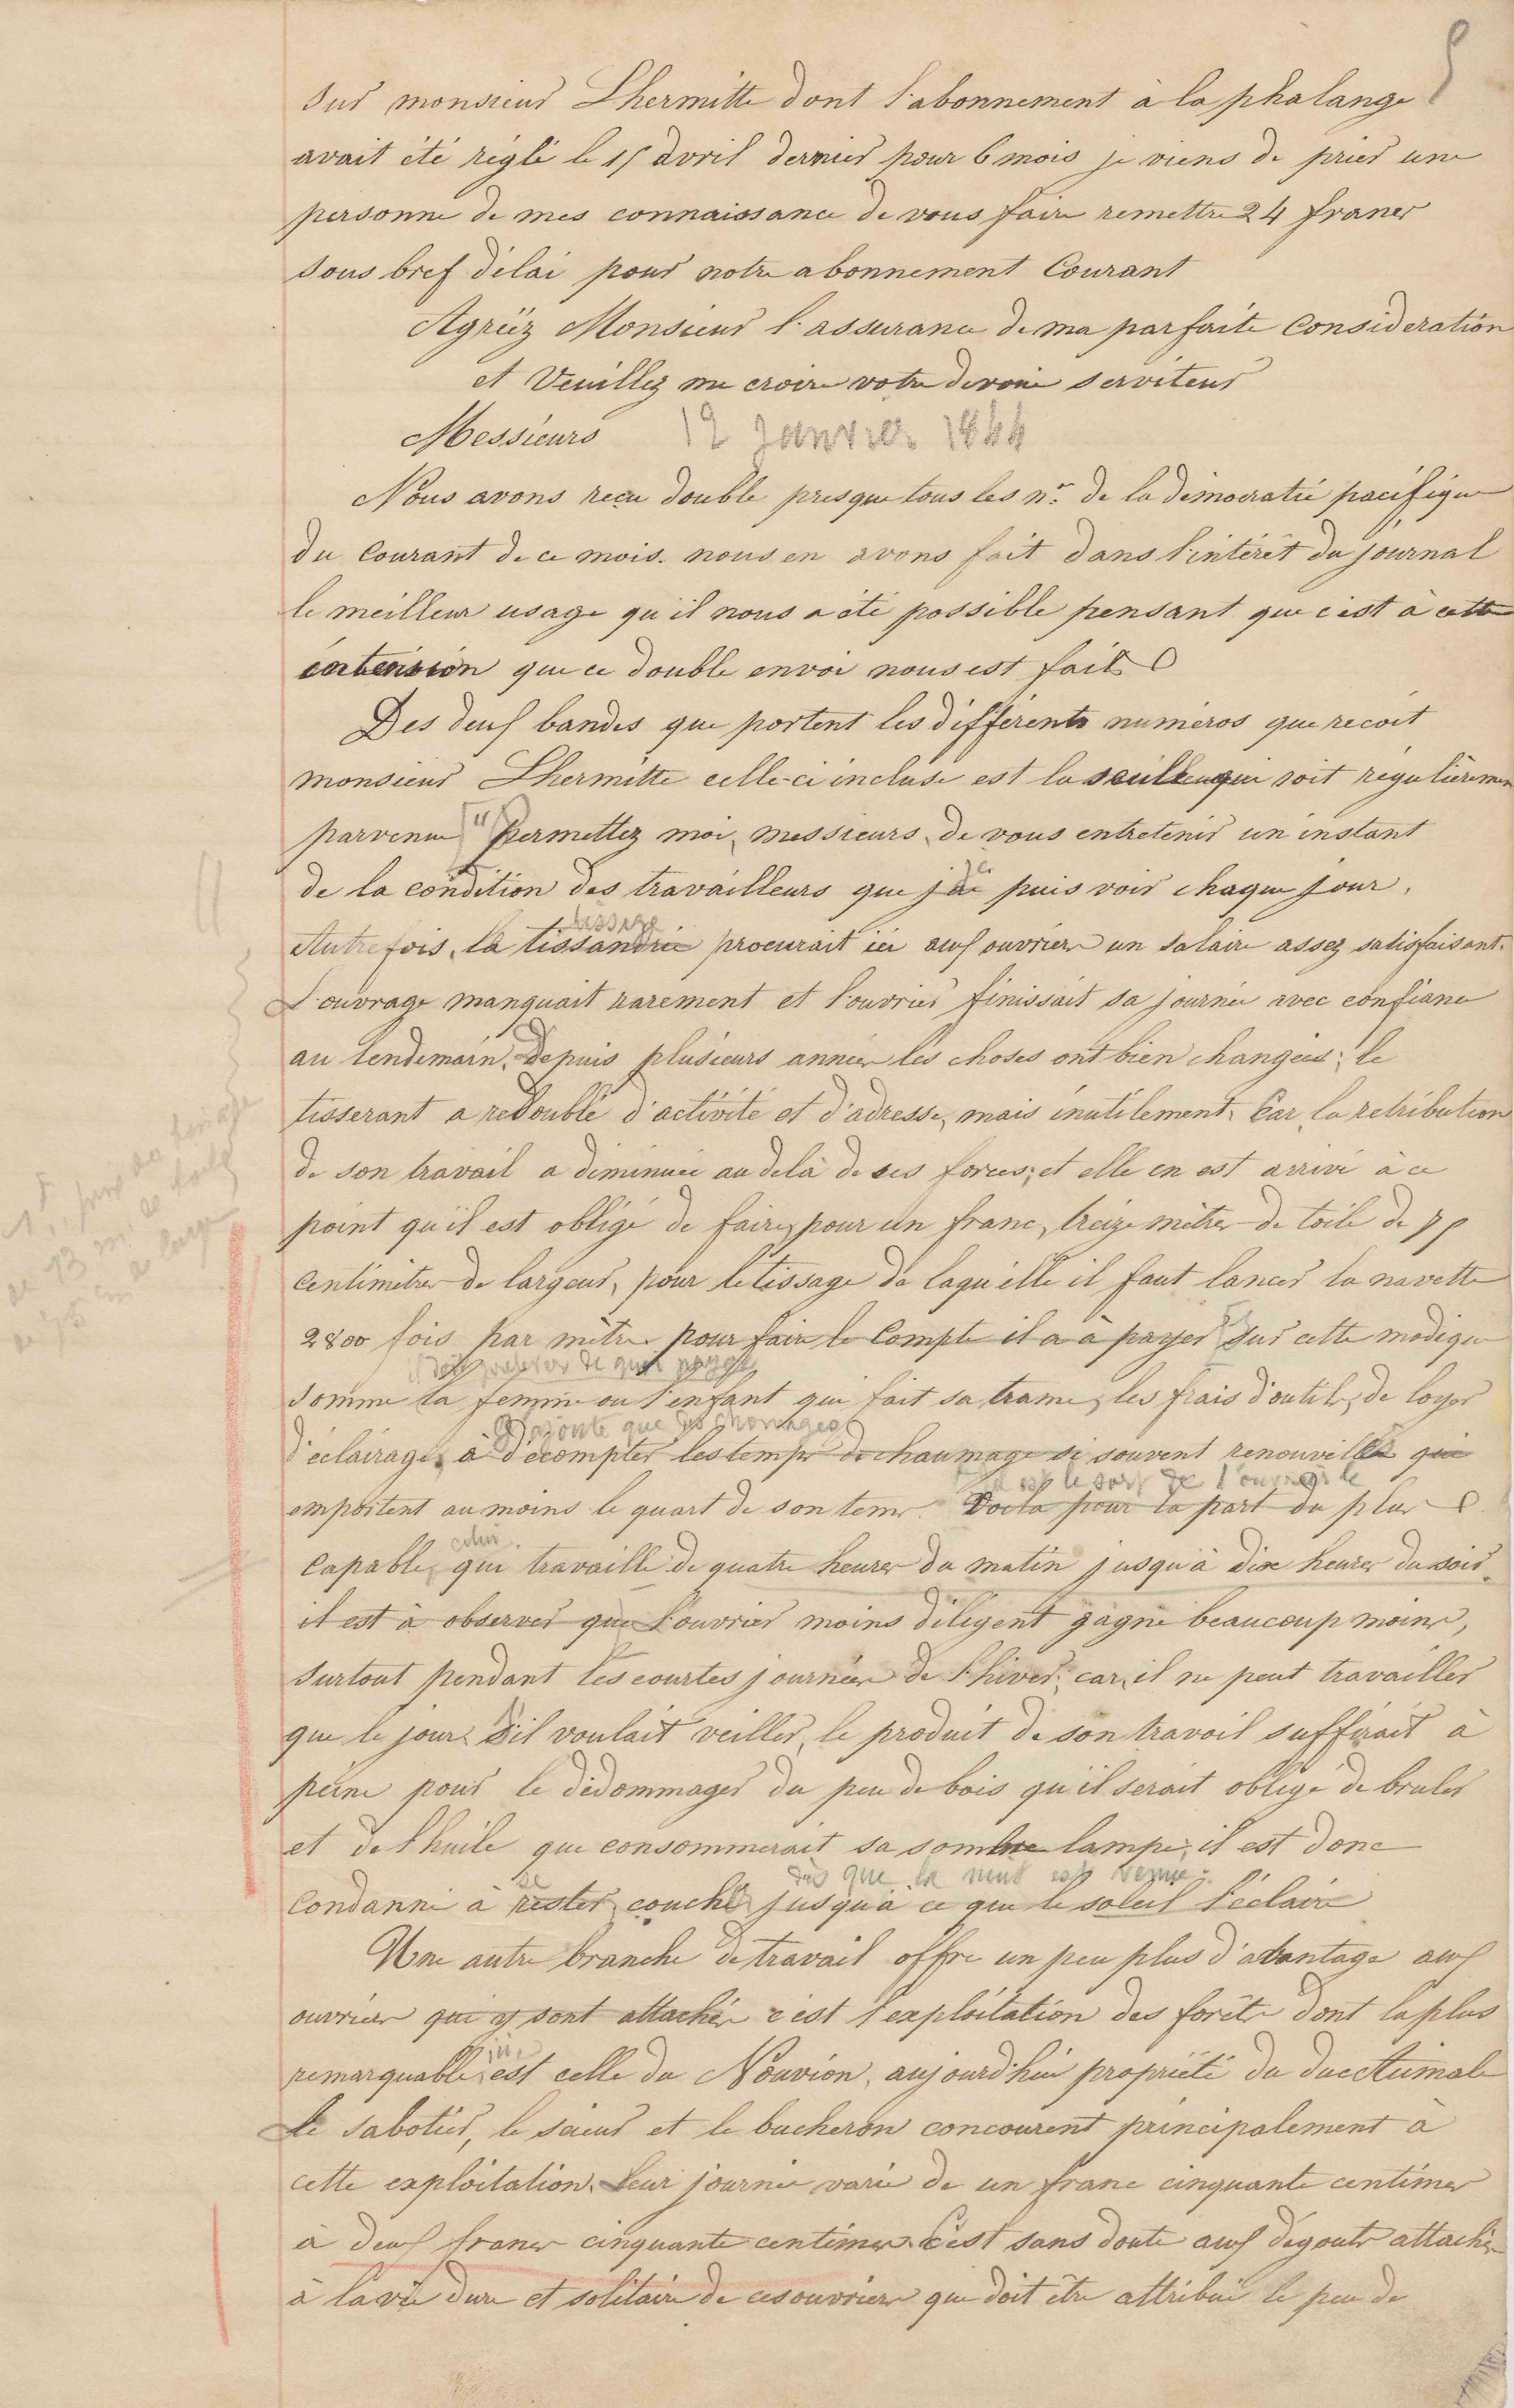 5
sur monsieur Lhermitte dont l'abonnement à la phalange
avait été réglé le 15 avril dernier pour 6 mois je viens de prier une
personne de mes connaissance de vous faire remettre 24 francs
sous bref délai pour notre abonnement Courant
Agréez Monsieur l'assurance de ma parfaite Consideration
et Veuillez me croire votre devoué serviteur
Messieurs 12 Janvier 1844
Nous avons reçu double presque tous les nos de la démocratie pacifique
du Courant de ce mois. nous en avons fait dans l'intérêt du journal
le meilleur usage qu'il nous a été possible pensant que c'est à cette
intension que ce double envoi nous est fait
Des deux bandes que portent les différents numéros que recoit
monsieur Lhermitte celle-ci incluse est la seule qui soit régulièremen
parvenue "permettez moi, messieurs, de vous entretenir un instant
de la condition des travailleurs que je puis voir chaque jour.
tissage
Autrefois, la tissandrie procurait ici aux ouvriers un salaire assez satisfaisant.
L'ouvrage manquait rarement et l'ouvrier finissait sa journée avec confiance
au lendemain. Depuis plusieurs années les choses ont bien changées: le
tisserant a redoublé d'activité et d'adresse, mais inutilement. Car, la retribution
de son travail a diminuée au delà de ses forces; et elle en est arrivé à ce
point qu'il est obligé de faire, pour un franc, treize mètres de toile de 75
1f pour du tissage
de 13 m. de toile
de 75 cm de large
Centimètres de largeur, pour le tissage de laquelle il faut lancer la navette
2800 fois par mètre. pour faire le Compte il a à payer sur cette modique
il doit prelever de quoi payer
somme la femme ou l'enfant qui fait sa trame, les frais d'outils, de loyer
ajoute que les chomages
d'éclairage, à décompter les temps de chaumage si souvent renouvellés qui
emportent au moins le quart de son tems. Voila pour la part du plus
tel est le sort de l'ouvrier le
celui
Capable, qui travaille de quatre heures du matin jusqu'à dix heures du soir.
il est à observer que L'ouvrier moins diligent gagne beaucoup moins,
surtout pendant les courtes journées de l'hiver; car, il ne peut travailler
que le jour. S'il voulait veiller, le produit de son travail suffirait à
peine pour le dédommager du peu de bois qu'il serait obligé de bruler
et de l'huile que consommerait sa sombre lampe; il est donc
se dès que la nuit est venue.
Condanné à rester couché jusqu'à ce que le soleil l'éclaire
Une autre branche de travail offre un peu plus d'avantage aux
ouvriers qui y sont attachés c'est l'exploitation des forêts dont la plus
remarquable, est celle du Nouvion, aujourd'hui propriété du duc Aumale
Le sabotier, le scieur et le bucheron concourent principalement à
cette exploitation. Leur journée varie de un franc cinquante centimes
à deux francs cinquante centimes. C'est sans doute aux dégouts attachés
à la vie dure et solitaire de ces ouvriers que doit être attribué le peu de